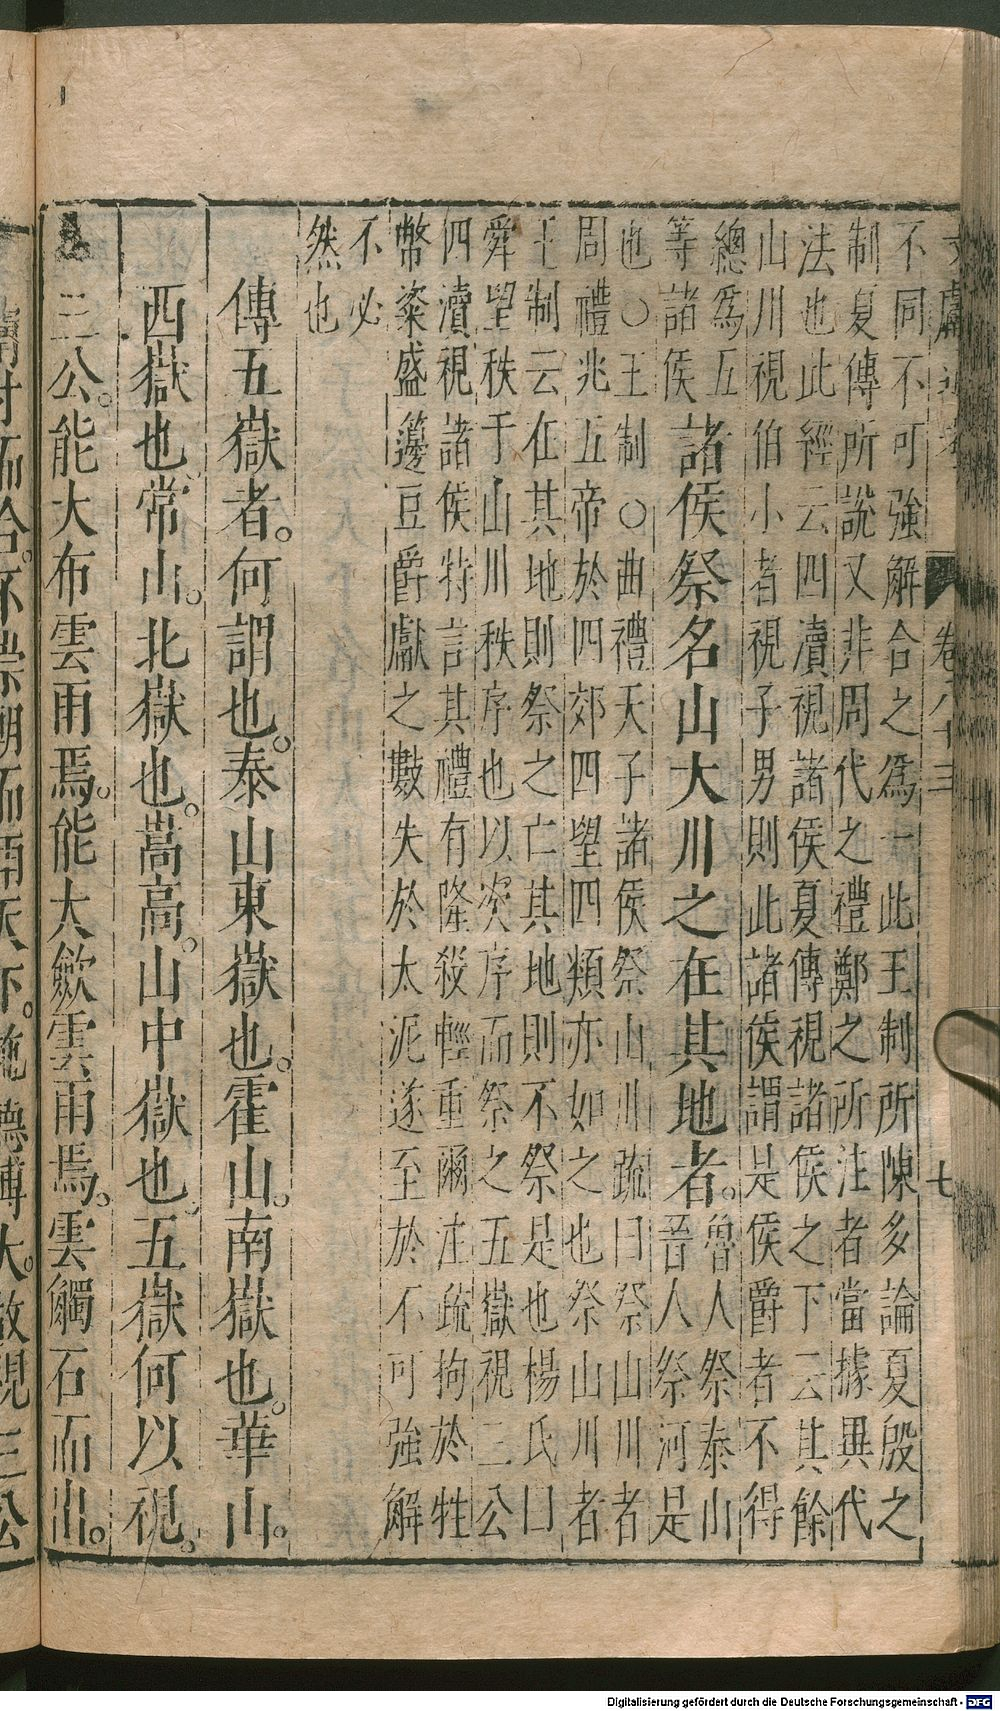 文獻通考 卷八十三 七
不同不可強解合之爲一此王制所陳多論夏殷之
制夏傳所說又非周代之禮鄭之所注者當據異代
法也此經云四瀆視諸侯夏傳視諸侯之下云其餘
山川視伯小者視子男則此諸侯謂是侯爵者不得
總爲五
等諸侯
諸侯祭名山大川之在其地者。
魯人祭泰山
晉人祭河是
也○王制○曲禮天子諸侯祭山川疏曰祭山川者
周禮兆五帝於四郊四望四類亦如之也祭山川者
王制云在其地則祭之亡其地則不祭是也楊氏曰
舜望秩于山川秩序也以次序而祭之五嶽視三公
四瀆視諸侯特言其禮有隆殺輕重爾注疏拘於牲
幣粢盛籩豆爵獻之數失於太泥遂至於不可強解
不必
然也
傳五嶽者。何謂也。泰山東嶽也。霍山。南嶽也。華山。
西嶽也。常山。北嶽也。嵩高。山中嶽也。五嶽何以視。
三公。能大布雲雨焉。能大歛雲雨焉。雲觸石而出。
膚寸而合。不崇朝而雨天下。施德博大。故視三公
Digitalisierung gefördert durch die Deutsche Forschungsgemeinschaft - DFG